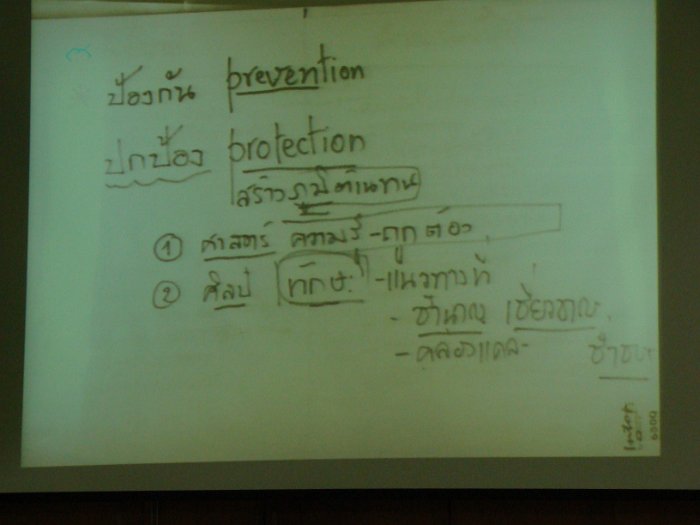 ป้องกัน prevention
ปกป้อง protection
สร้างภูมิต้านทาน
① ศาสตร์ ความรู้-ถูกต้อง
② ศิลป์ ทักษะ -แนวทางที่
- ชำนาญ เชี่ยวชาญ
- คล่องแคล่ว